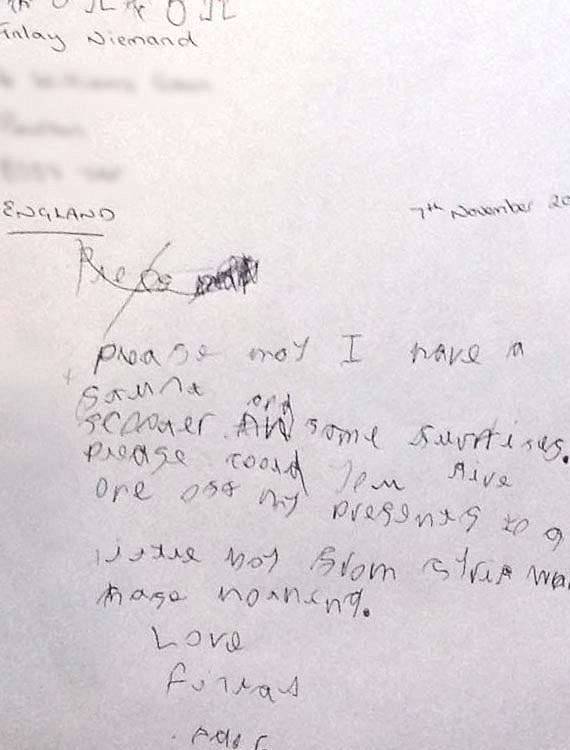 Finlay Niemand
ENGLAND
7th November 20
please may I have a
stunt
and
scooter some surprises.
please could you give
one off my presents to a
little boy from syria
have nothing.
Love
finlay